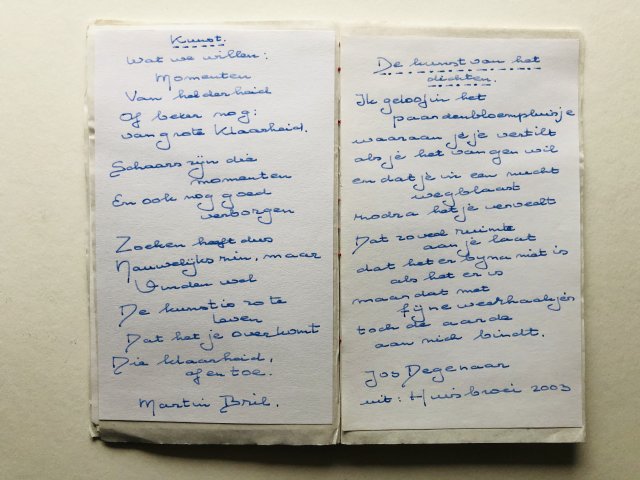 Kunst.
Wat we willen:
Momenten
Van helderheid
Of beter nog:
van grote Klaarheid.
Schaars zijn die
momenten
En ook nog goed
verborgen
Zoeken heeft dus
Nauwelijks zin, maar
Vinden wel
De kunst is zo te
leven
Dat het je overkomt
Die klaarheid,
af en toe.
Martin Bril.
De kunst van het
dichten.
Ik geloof in het
paardenbloempluisje
waaraan je je vertilt
als je het vangen wil
en dat je in een zucht
wegblaast
zodra het je verveelt
Dat zoveel ruimte
aan je laat
dat het er byna niet is
als het er is
maar dat met
fijne weerhaakjes
toch de aarde
aan zich bindt.
Jos Degenaar
uit: Huisbroei 2003